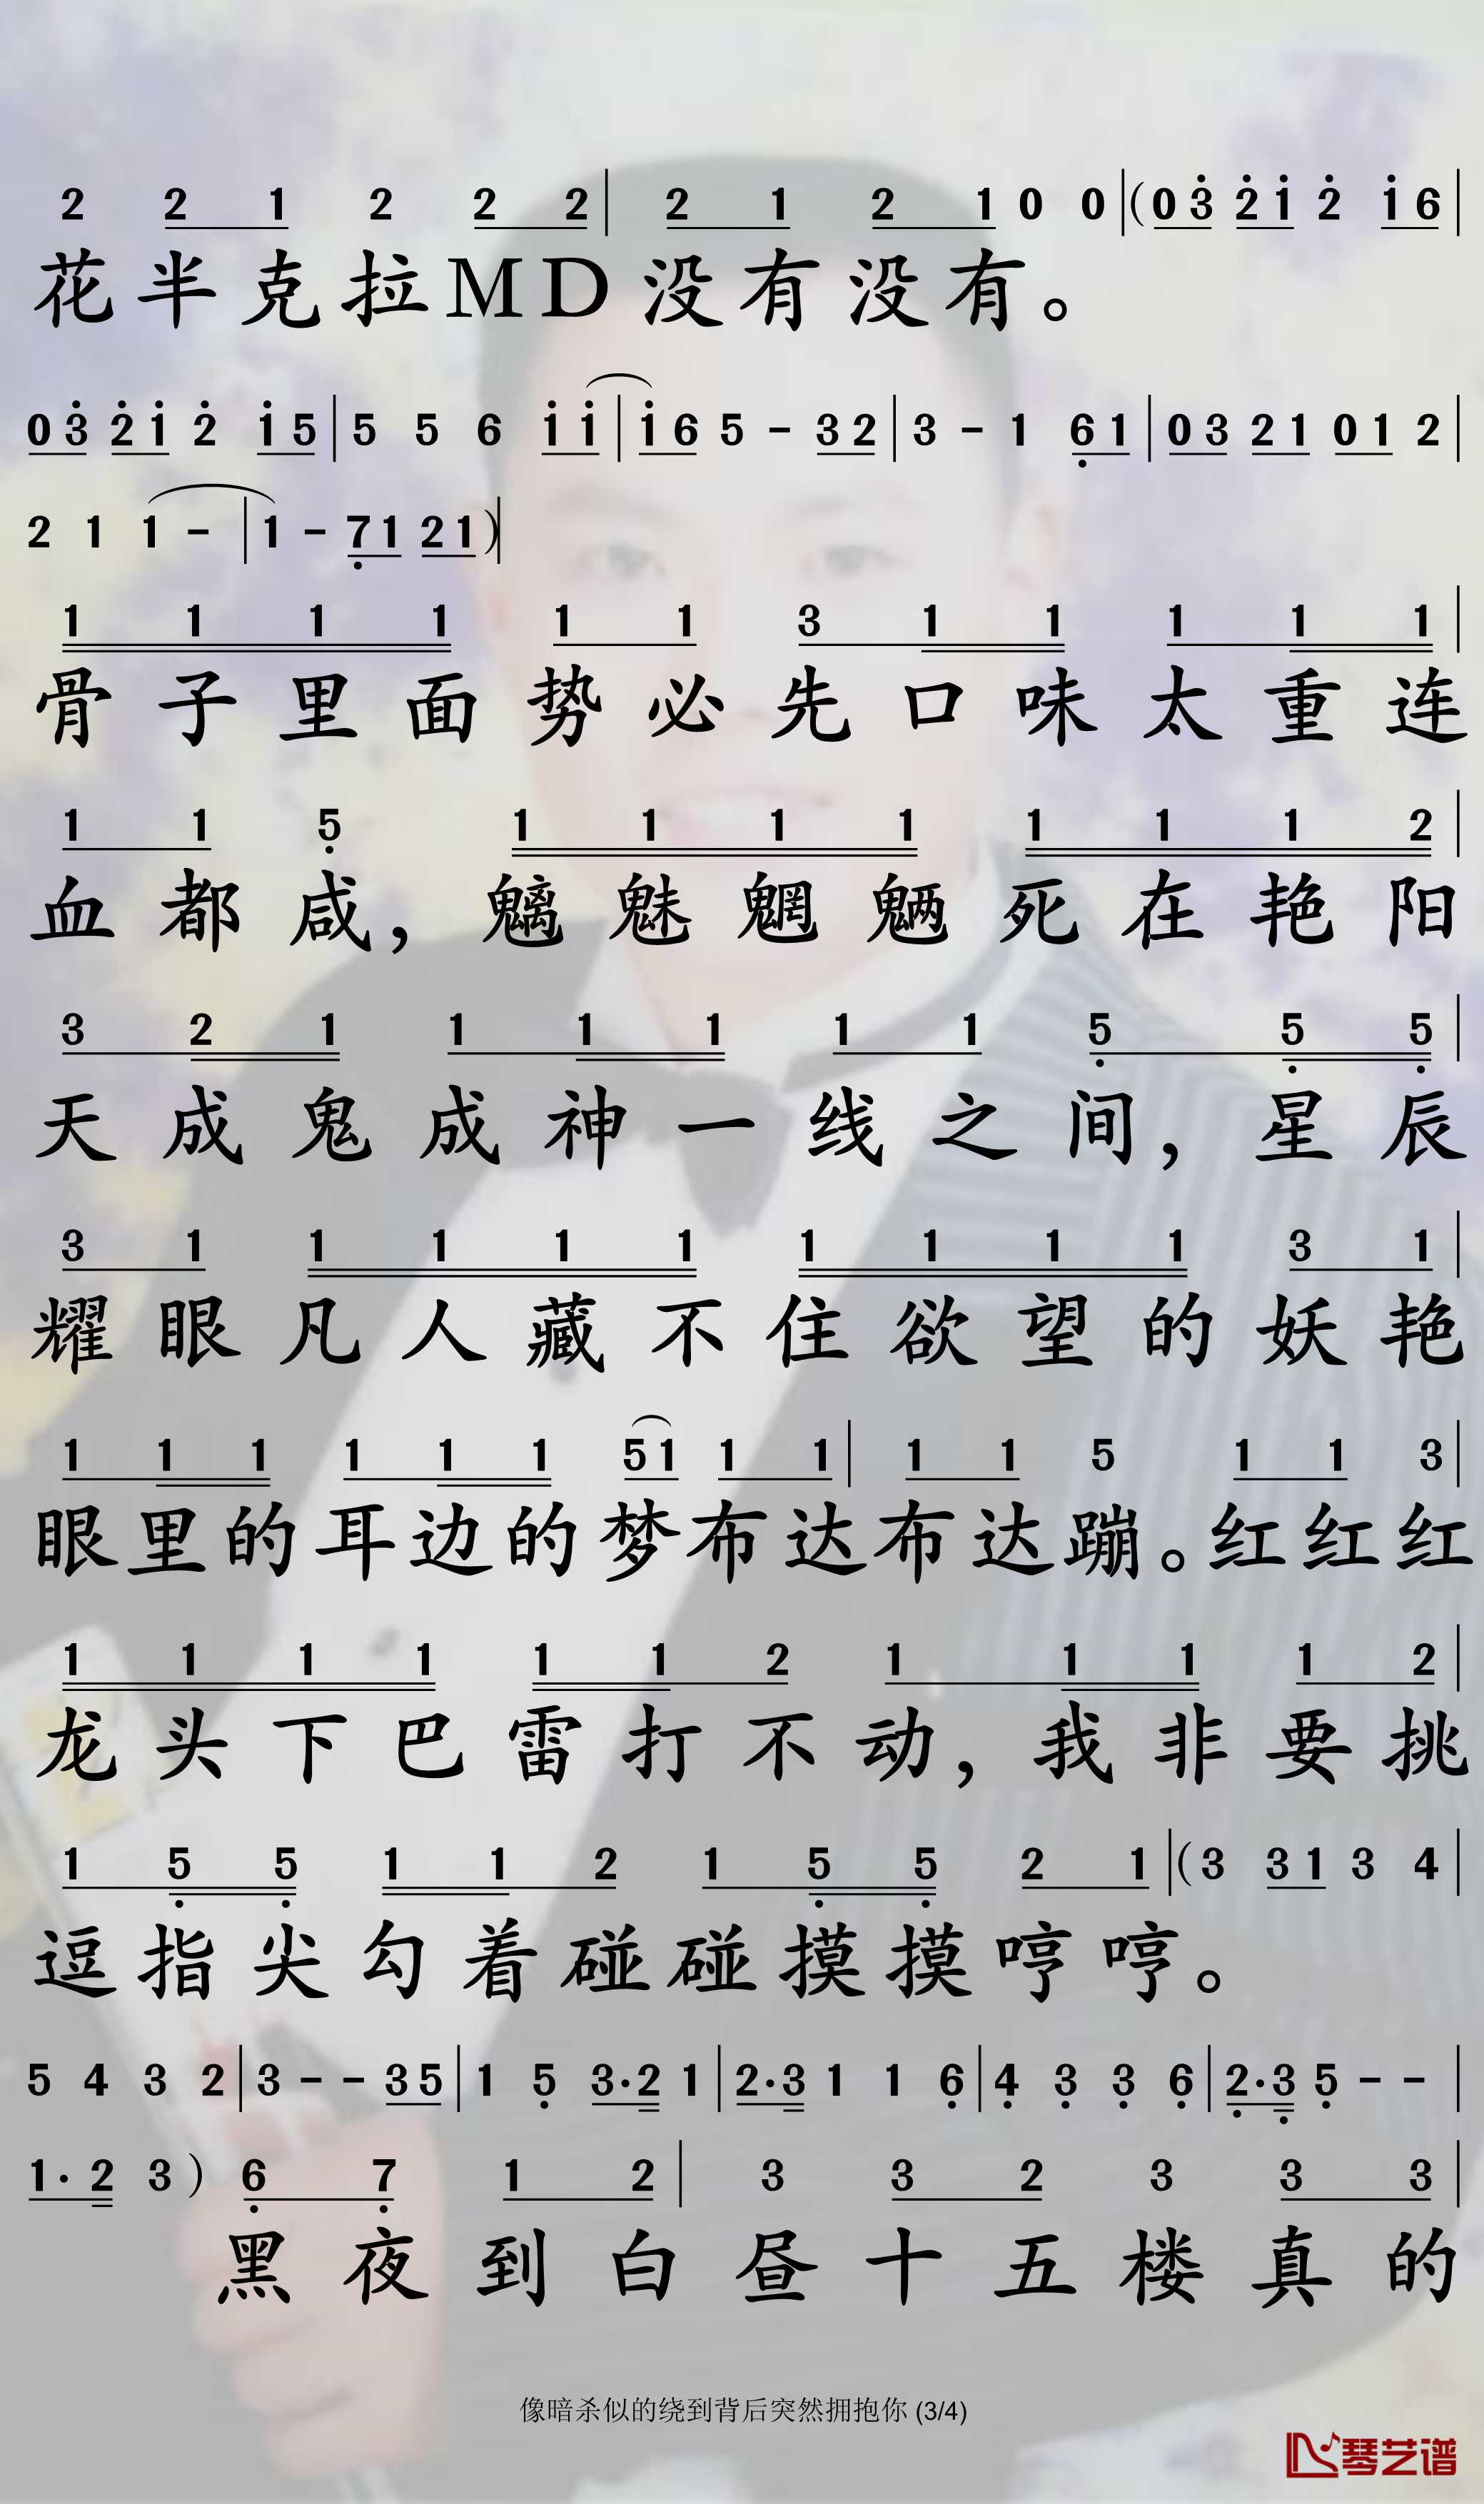 2 2 1 2 2 2 | 2 1 2 1 0 0 |(0 3 2 1 2 1 6 |
花半克拉MD没有没有。
0 3 2 1 2 1 5 | 5 5 6 1 1 | 1 6 5 - 3 2 | 3 - 1 6 1 | 0 3 2 1 0 1 2 |
2 1 1 - | 1 - 7 1 2 1 )|
1 1 1 1 1 1 3 1 1 1 1 1 |
骨子里面势必先口味太重连
1 1 5 1 1 1 1 1 1 1 2 |
血都咸，魑魅魍魉死在艳阳
3 2 1 1 1 1 1 1 5 5 5 |
天成鬼成神一线之间，星辰
3 1 1 1 1 1 1 1 1 1 3 1 |
耀眼凡人藏不住欲望的妖艳
1 1 1 1 1 1 5 1 1 1 | 1 1 5 1 1 3 |
眼里的耳边的梦布达布达蹦。红红红
1 1 1 1 1 1 2 1 1 1 1 2 |
龙头下巴雷打不动，我非要挑
1 5 5 1 1 2 1 5 5 2 1 |(3 3 1 3 4 |
逗指尖勾着碰碰摸摸哼哼。
5 4 3 2 | 3 - - 3 5 | 1 5 3· 2 1 | 2· 3 1 1 6 | 4 3 3 6 | 2· 3 5 - - |
1· 2 3 ) 6 7 1 2 | 3 3 2 3 3 3 |
黑夜到白昼十五楼真的
像暗杀似的绕到背后突然拥抱你 (3/4)
琴艺谱